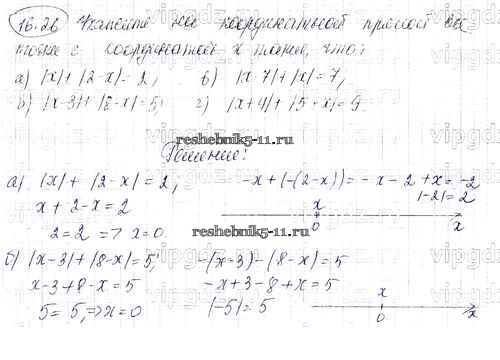 16.26 Укажите на координатной прямой все
точки с координатой x такие, что:
а) |x| + |2-x| = 2, в) |x-7| + |x| = 7,
б) |x-3| + |8-x| = 5, г) |x+4| + |5-x| = 9.
reshebnik5-11.ru
Решение:
а) |x| + |2-x| = 2, -x + (-(2-x)) = -x - 2 + x = -2
x + 2 - x = 2 |-2| = 2
2 = 2 => x = 0 x 0 x
reshebnik5-11.ru
б) |x-3| + |8-x| = 5, -(x-3) - (8-x) = 5
x - 3 + 8 - x = 5 -x + 3 - 8 + x = 5
5 = 5, => x = 0 |-5| = 5 x 0 x